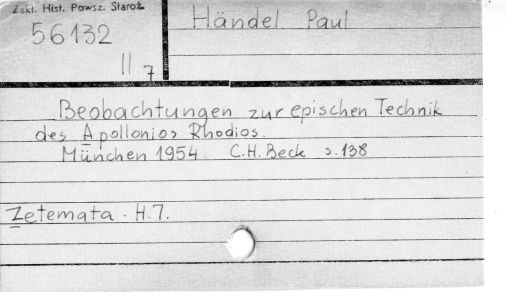 Zakł. Hist. Powsz. Staroż.
56132
II 7
Händel Paul
Beobachtungen zur epischen Technik
des Apollonios Rhodios.
München 1954 C.H. Beck s. 138
Zetemata. H. 7.